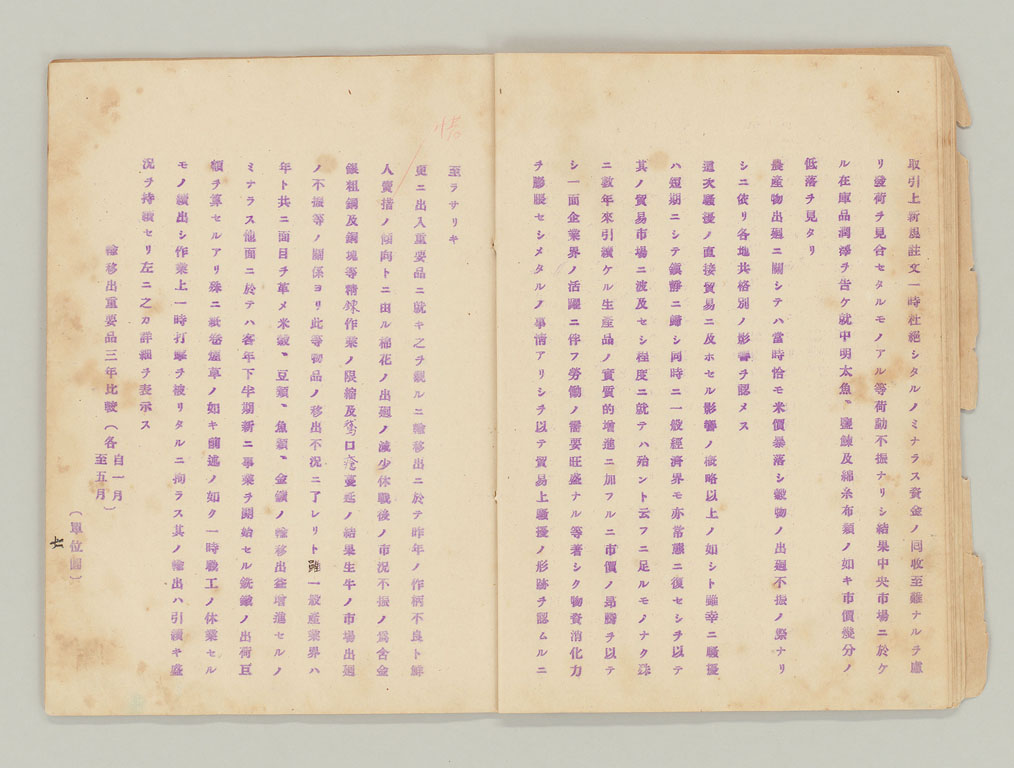 取引上新規註文一時杜絕シタルノミナラス資金ノ囘收至難ナルヲ慮
リ發荷ヲ見合セタルモノアル等荷動不振ナリシ結果中央市場ニ於ケ
ル在庫品潤澤ヲ吿ケ就中明太魚、鹽鰊及綿糸布類ノ如キ市價幾分ノ
低落ヲ見タリ
農產物出廻ニ關シテハ當時恰モ米價暴落シ穀物ノ出廻不振ノ際ナリ
シニ依リ各地共格別ノ影響ヲ認メス
這次騷擾ノ直接貿易ニ及ホセル影響ノ槪略以上ノ如シト雖幸ニ騷擾
ハ短期ニシテ鎭靜ニ歸シ同時ニ一般經濟界モ亦常態ニ復セシヲ以テ
其ノ貿易市場ニ波及セシ程度ニ就テハ殆ント云フニ足ルモノナク殊
ニ數年來引續ケル生產品ノ實質的增進ニ加フルニ市價ノ昻騰ヲ以テ
シ一面企業界ノ活躍ニ伴フ勞働ノ需要旺盛ナル等著シク物資消化力
ヲ膨脹セシメタルノ事情アリシヲ以テ貿易上騷擾ノ形跡ヲ認ムルニ
至ラサリキ
更ニ出入重要品ニ就キ之ヲ觀ルニ輸移出ニ於テ昨年ノ作柄不良ト鮮
人賣惜ノ傾向トニ因ル棉花ノ出廻ノ減少休戰後ノ市況不振ノ爲含金
銀粗銅及銅塊等精煉作業ノ限縮及口蹄疫蔓延ノ結果生牛ノ市場出廻
ノ不振等ノ關係ヨリ此等物品ノ移出不況ニ了レリト雖一般產業界ハ
年ト共ニ面目ヲ革メ米穀、豆類、魚類、金鑛ノ輸移出益增進セルノ
ミナラス他面ニ於テハ客年下半期新ニ事業ヲ開始セル銑鐵ノ出荷巨
額ヲ算セルアリ殊ニ紙卷煙草ノ如キ前述ノ如ク一時職工ノ休業セル
モノ續出シ作業上一時打擊ヲ被リタルニ拘ラス其ノ輸出ハ引續キ盛
況ヲ持續セリ左ニ之カ詳細ヲ表示ス
輸移出重要品三年比較(各自一月至五月)
(單位圓)